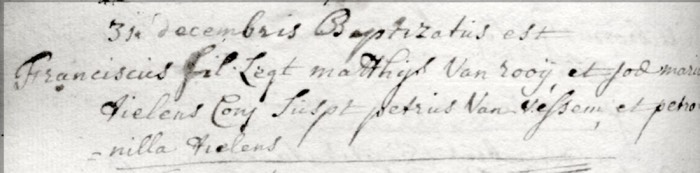 31 decembris Baptizatus est
Franciscus fil. Legt matthijs Van rooÿ et joæ maria
tielens Conj Suspt petrus Van Vessem, et petro
-nilla tielens